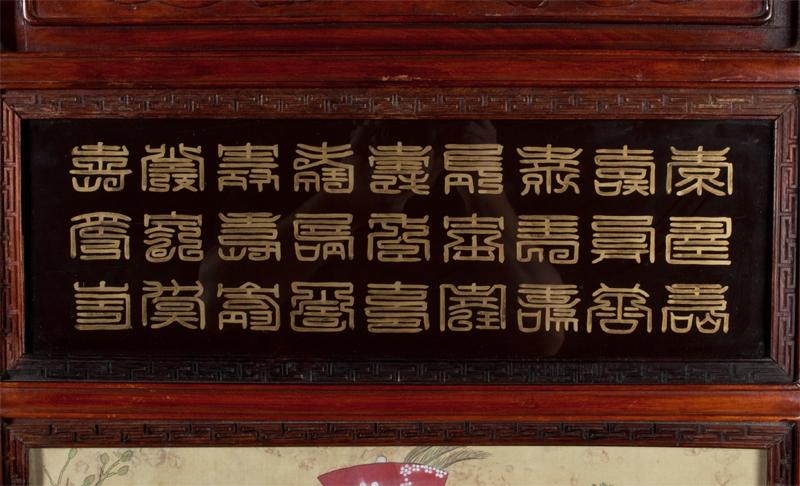 壽壽壽
壽壽壽
壽壽壽
壽壽壽
壽壽壽
壽壽壽
壽壽壽
壽壽壽
壽壽壽